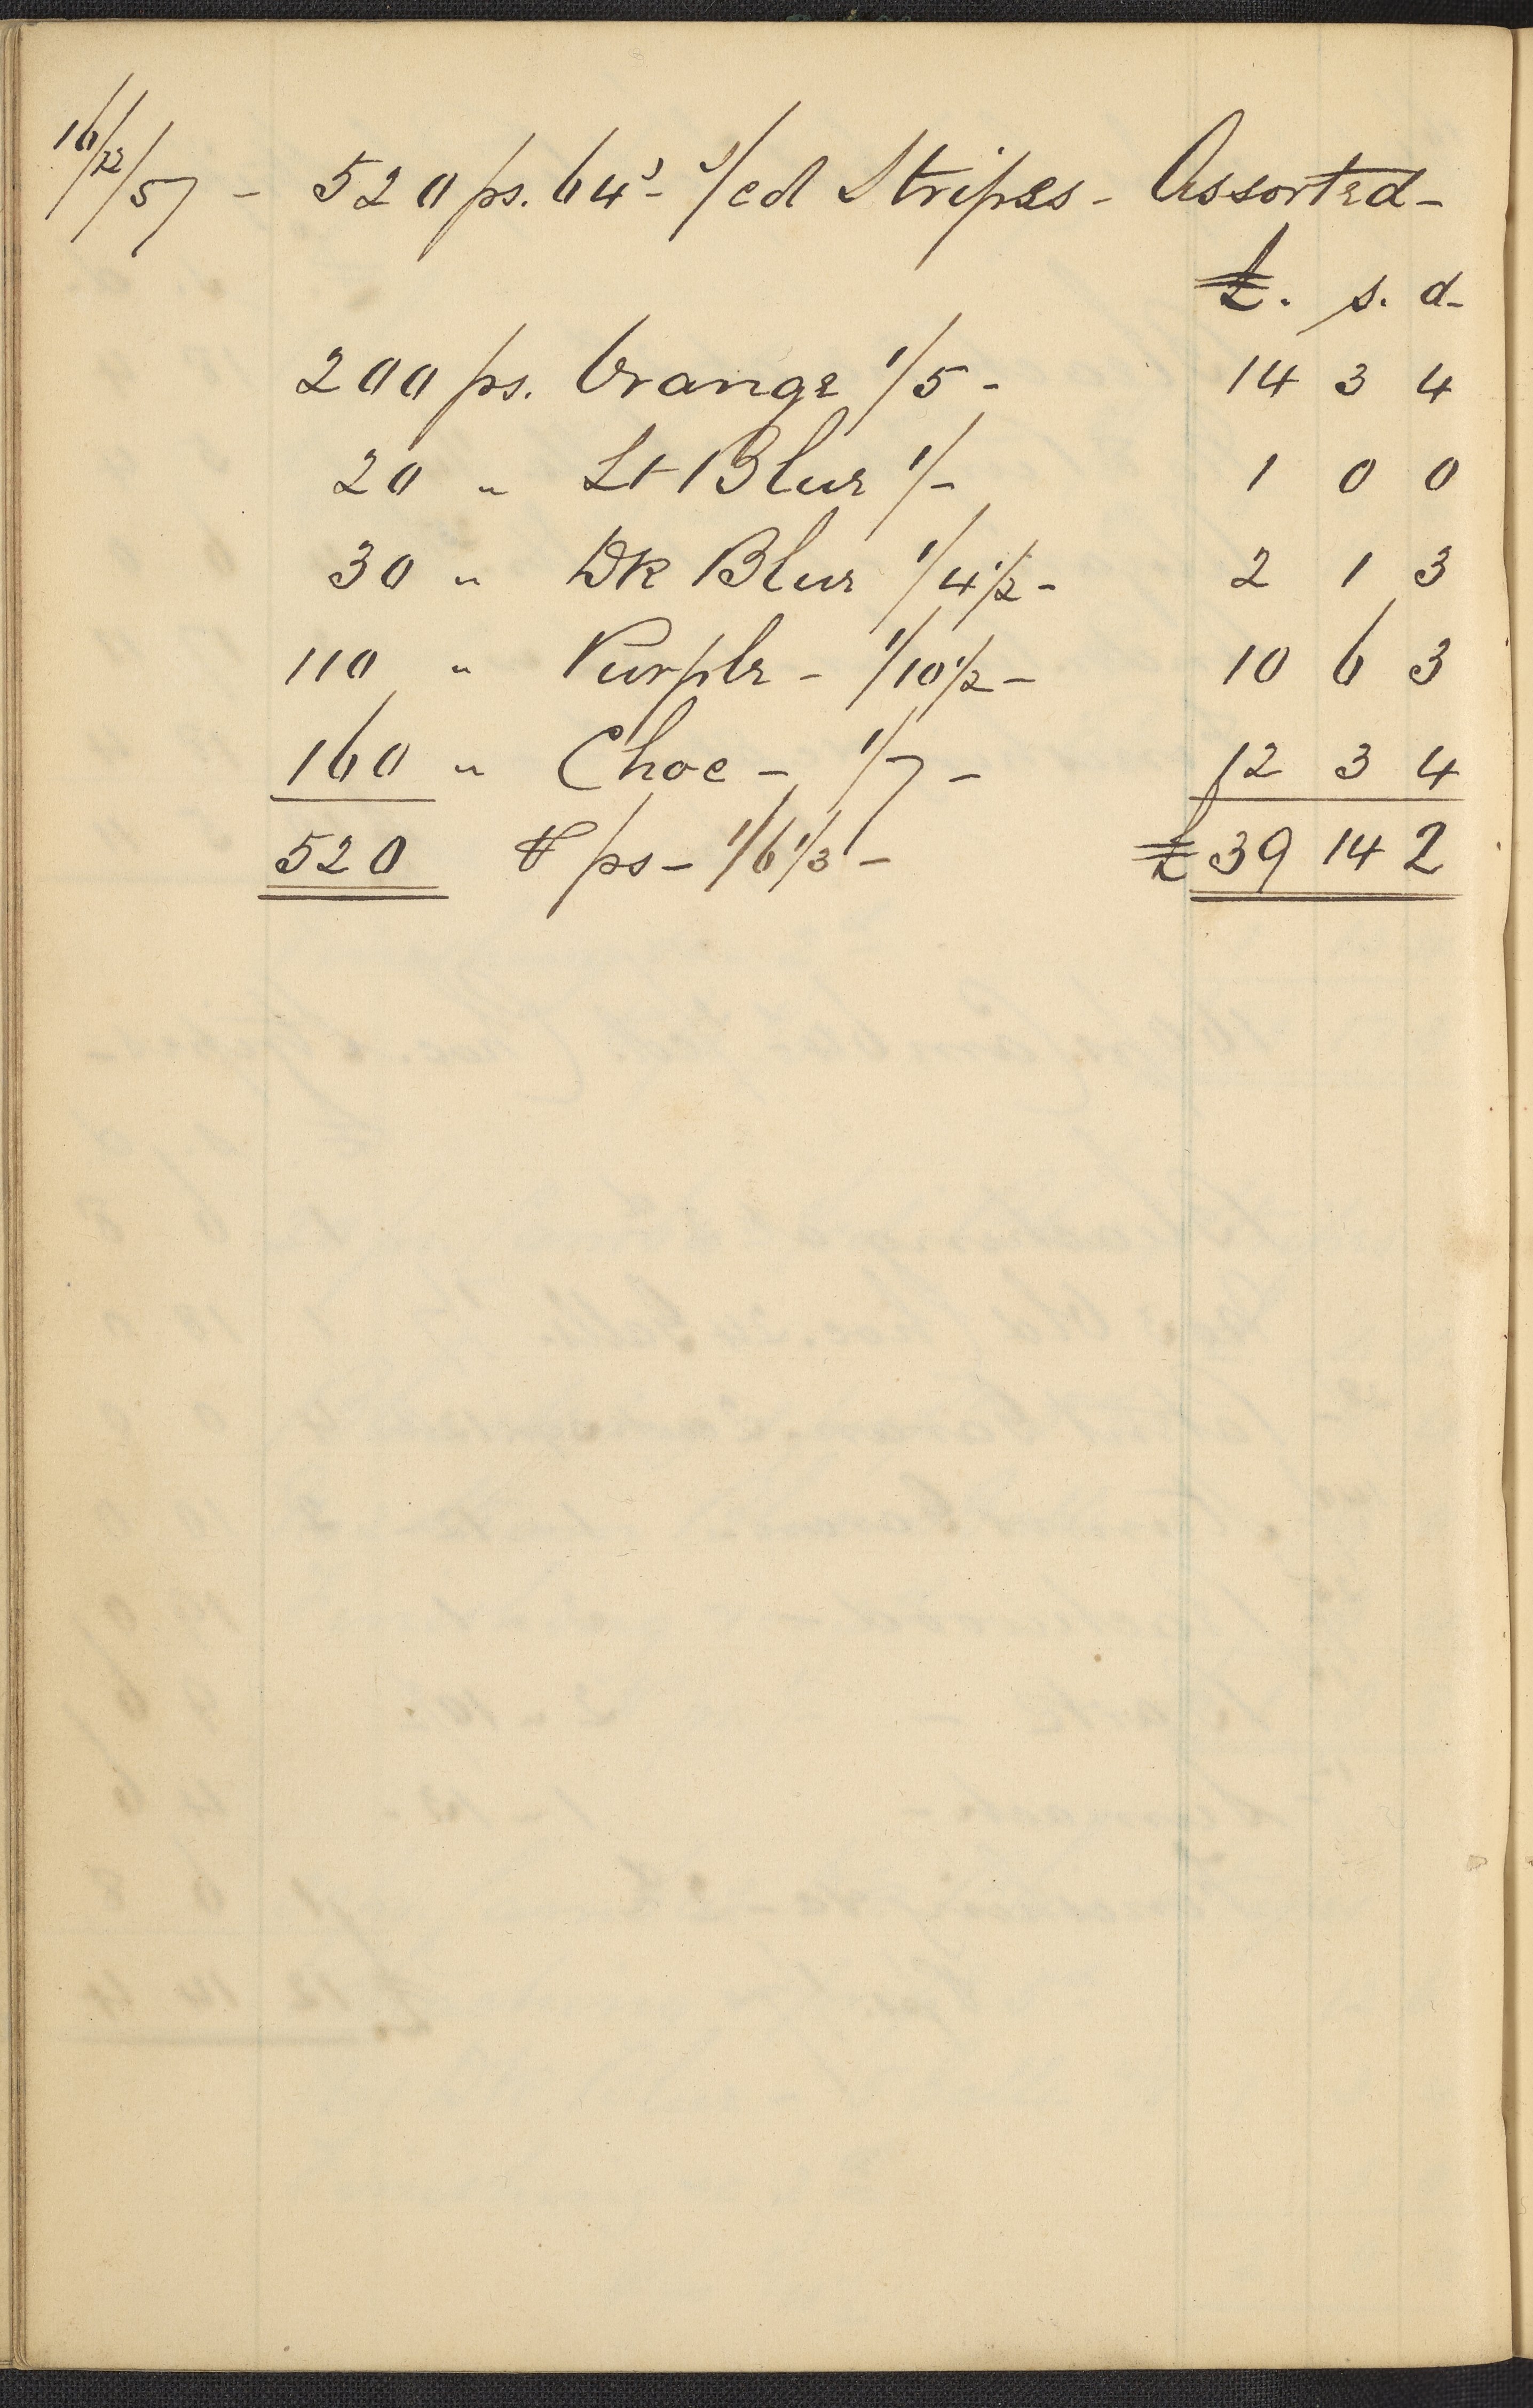 16/12/57 - 520 ps. 64s - s/cd Stripes - Assorted -
£. s. d -
200 ps. Orange 1/5 - 14 3 4
20 " Lt Blue 1/- 1 0 0
30 " Dk Blue 1/4 1/2 - 2 1 3
110 " Purple - 1/10 1/2 - 10 6 3
160 " Choc - 1/7 - 12 3 4
520 ⅌ ps - 1/6 1/3 - £ 39 14 2